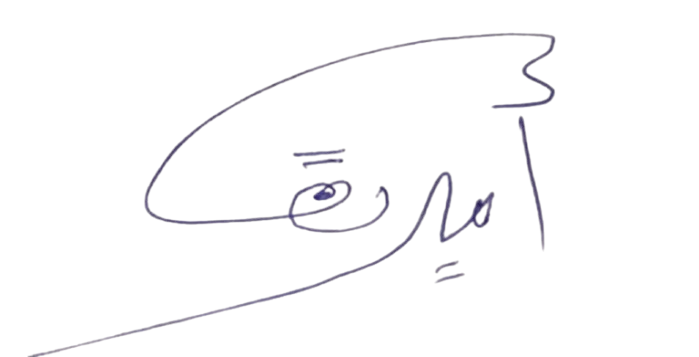 أميرة